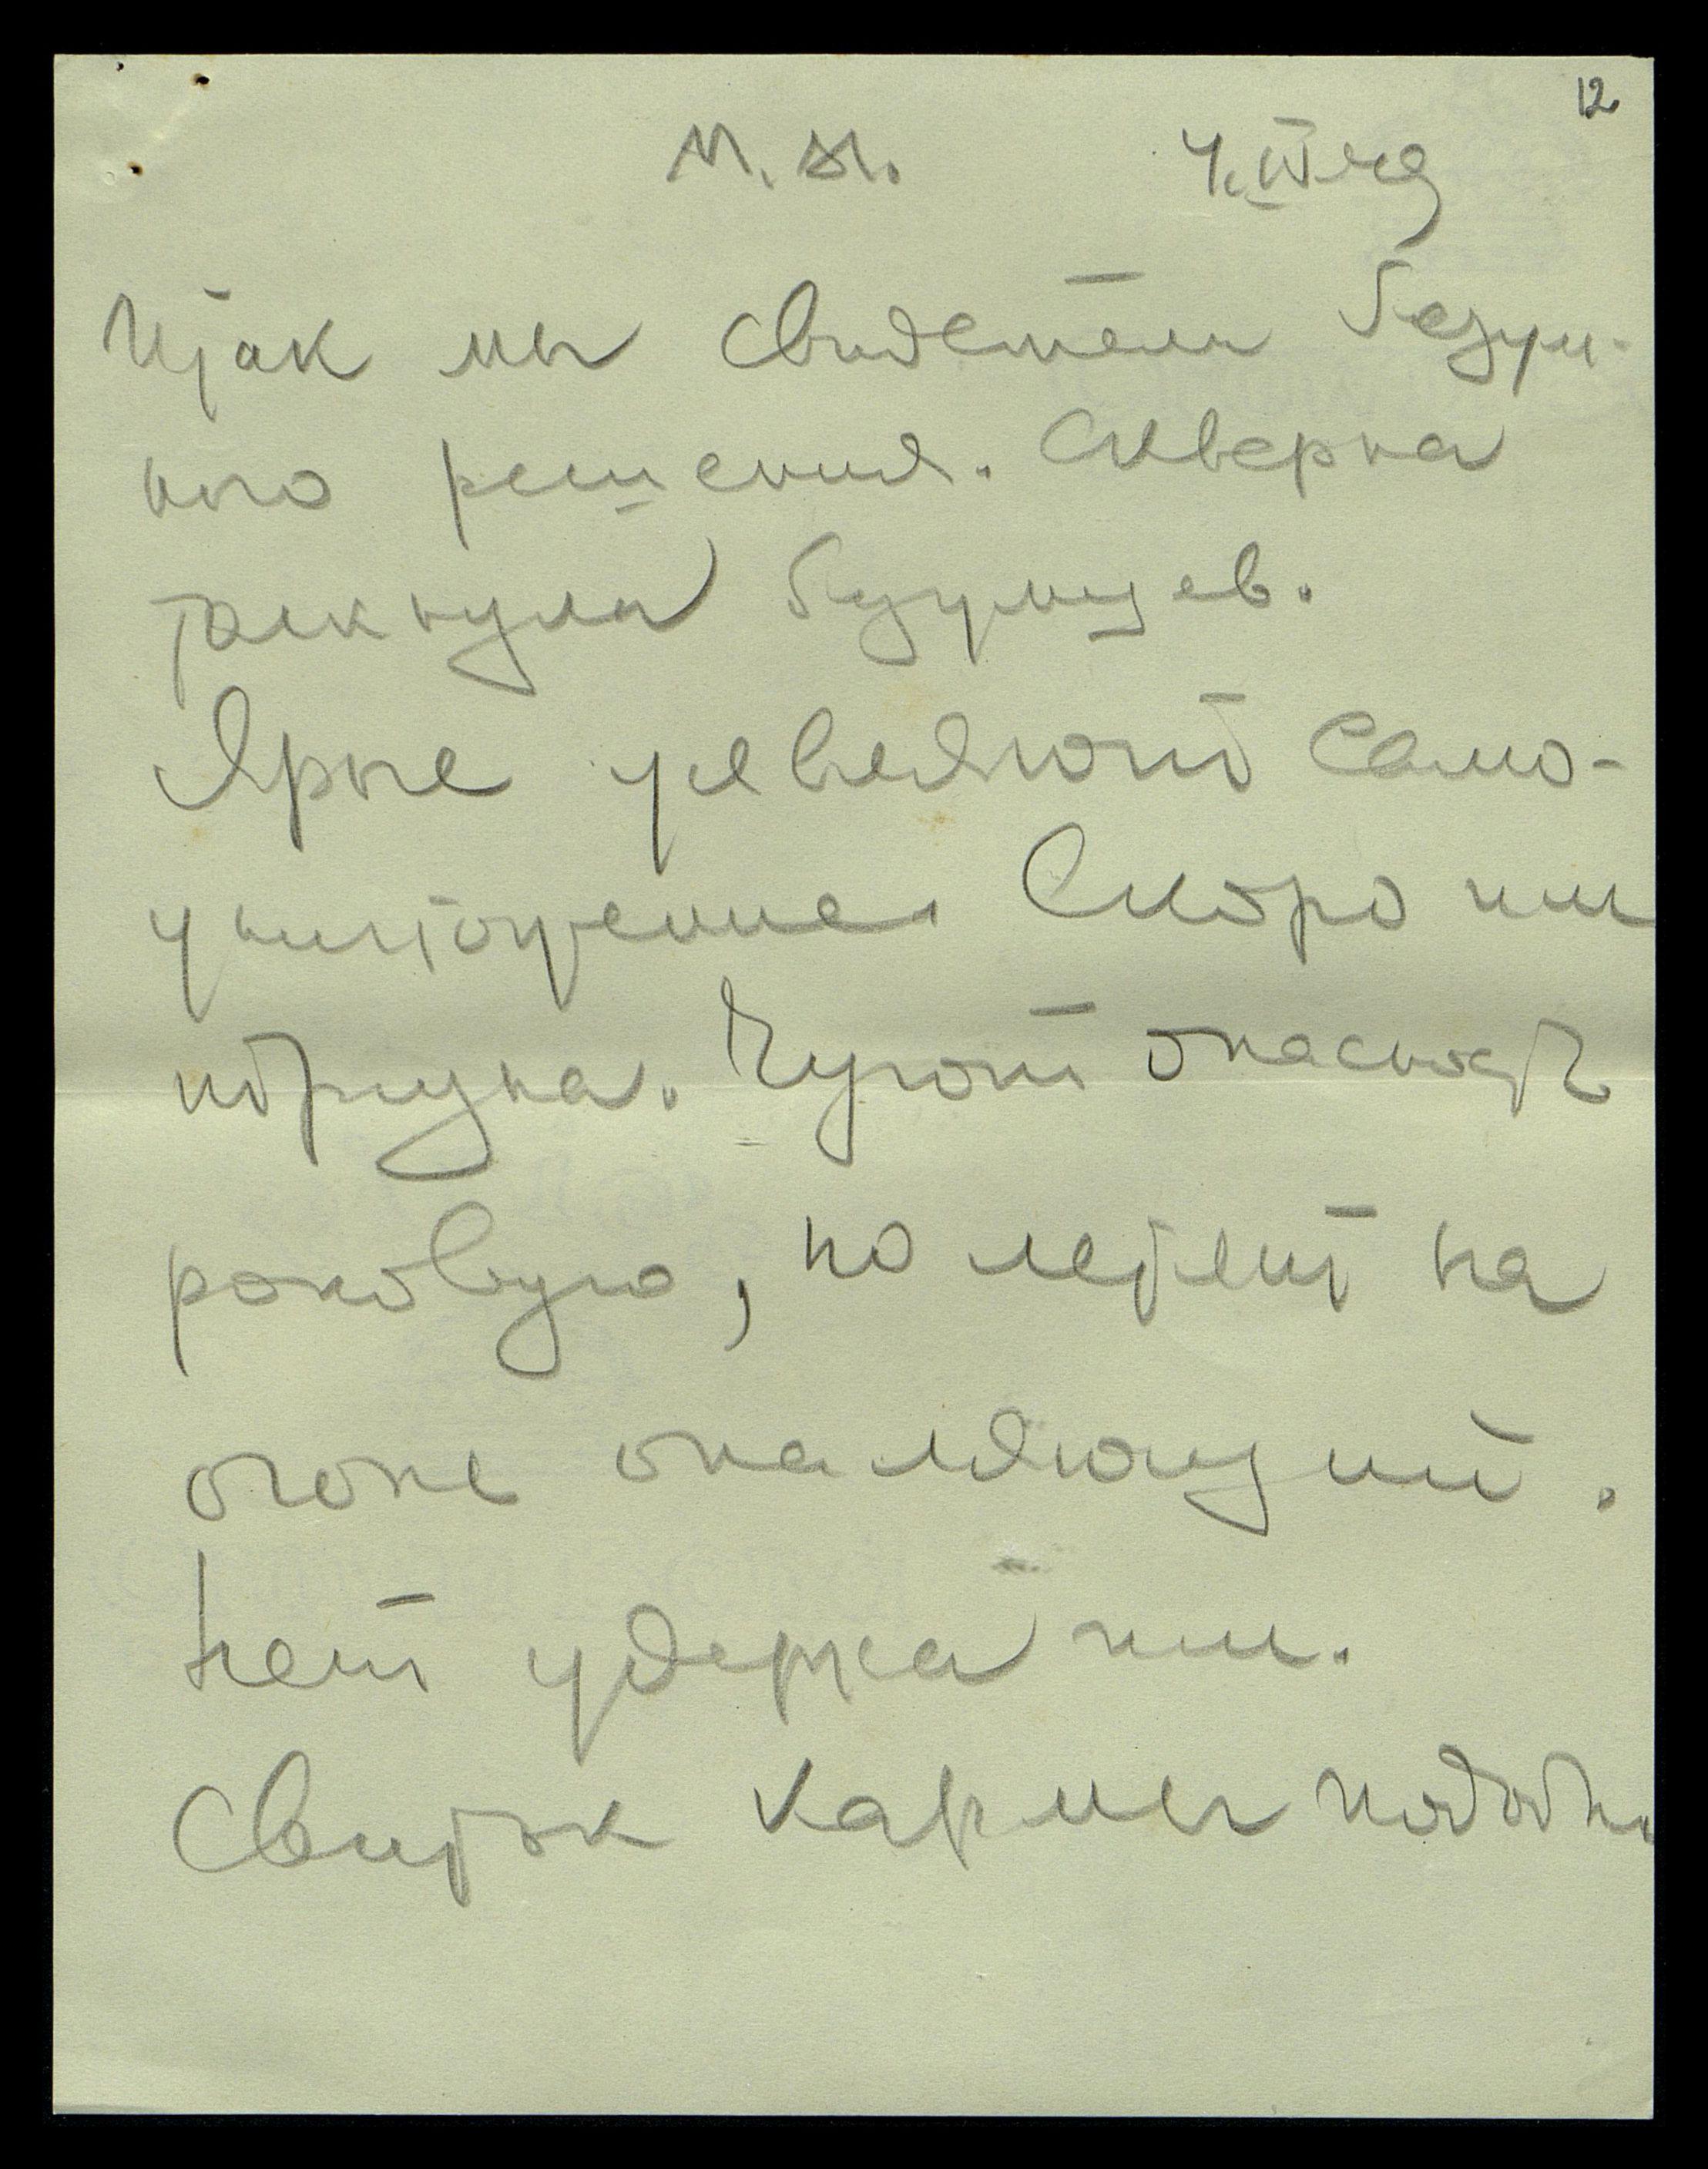 12
М. М. 4.IV.49
Итак мы свидетели безум-
ного решения. Скверна
толкнула безумцев.
Ярые уявляют само-
уничтожение. Скоро им
пойдут на. Чуют опасность
роковую, но летят на
огонь опаляющий.
Нет удержа им.
Свиток кармы подобно